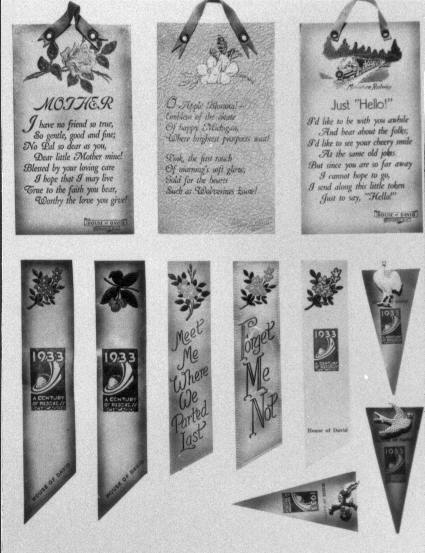 MOTHER
I have no friend so true,
So gentle, good and fine;
No Pal so dear as you,
Dear little Mother mine!
Blessed by your loving care
I hope that I may live
True to the faith you bear,
Worthy the love you give!
HOUSE OF DAVID
O Apple Blossom! -
Emblem of the state
Of happy Michigan,
Where brightest prospects wait!
Took, the first touch
Of morning's soft glow,
Gold for the hearts
Such as Wolverines
Miniature Railway
Just "Hello!"
I'd like to be with you awhile
And hear about the folks;
I'd like to see your cheery smile
At the same old jokes.
But since you are so far away
I cannot hope to go,
I send along this little token
Just to say, "Hello!"
HOUSE OF DAVID
1933
A CENTURY
OF PROGRESS
HOUSE OF DAVID
1933
A CENTURY
OF PROGRESS
HOUSE OF DAVID
Meet
Me
Where
We
Parted
Last
Forget
Me
Not
1933
House of David
1933
1933
1933